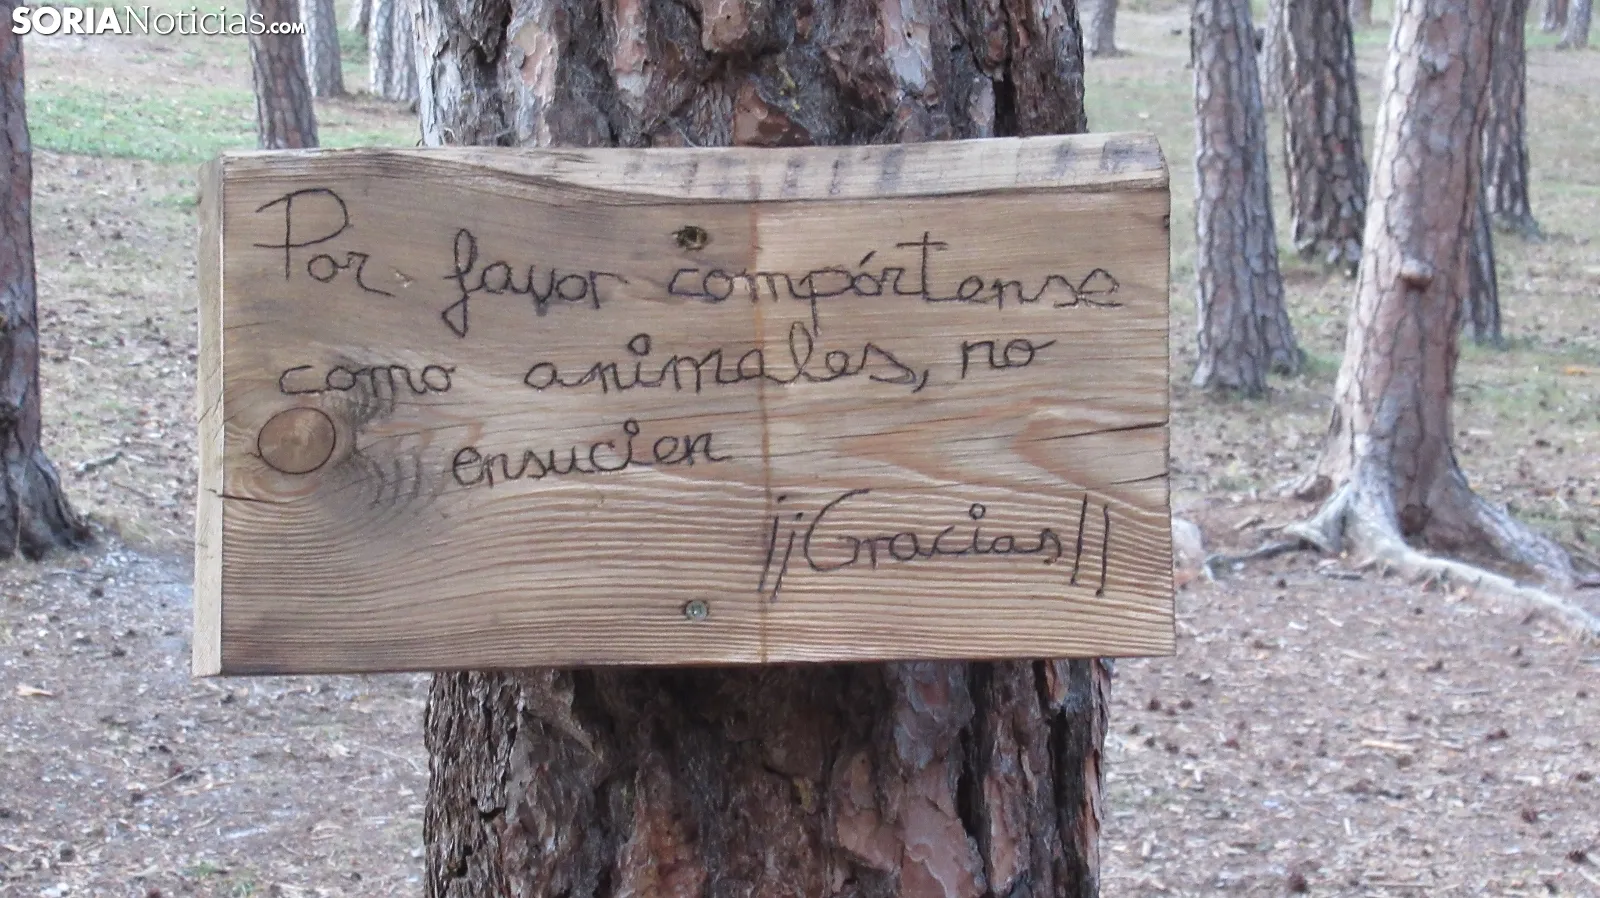 SORIANoticias.com
Por favor compórtense
como animales, no
ensucien
¡¡Gracias!!